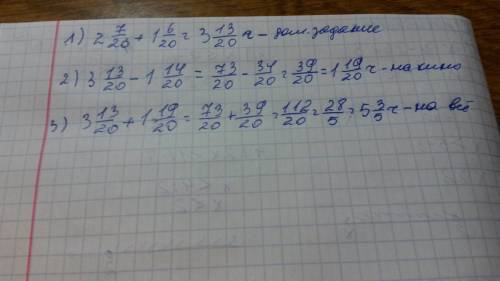 1) 2 7/20 + 1 6/20 = 3 13/20 ч - дом. задание
2) 3 13/20 - 1 14/20 = 73/20 - 34/20 = 39/20 = 1 19/20 ч - на кино
3) 3 13/20 + 1 19/20 = 73/20 + 39/20 = 112/20 = 28/5 = 5 3/5 ч - на всё